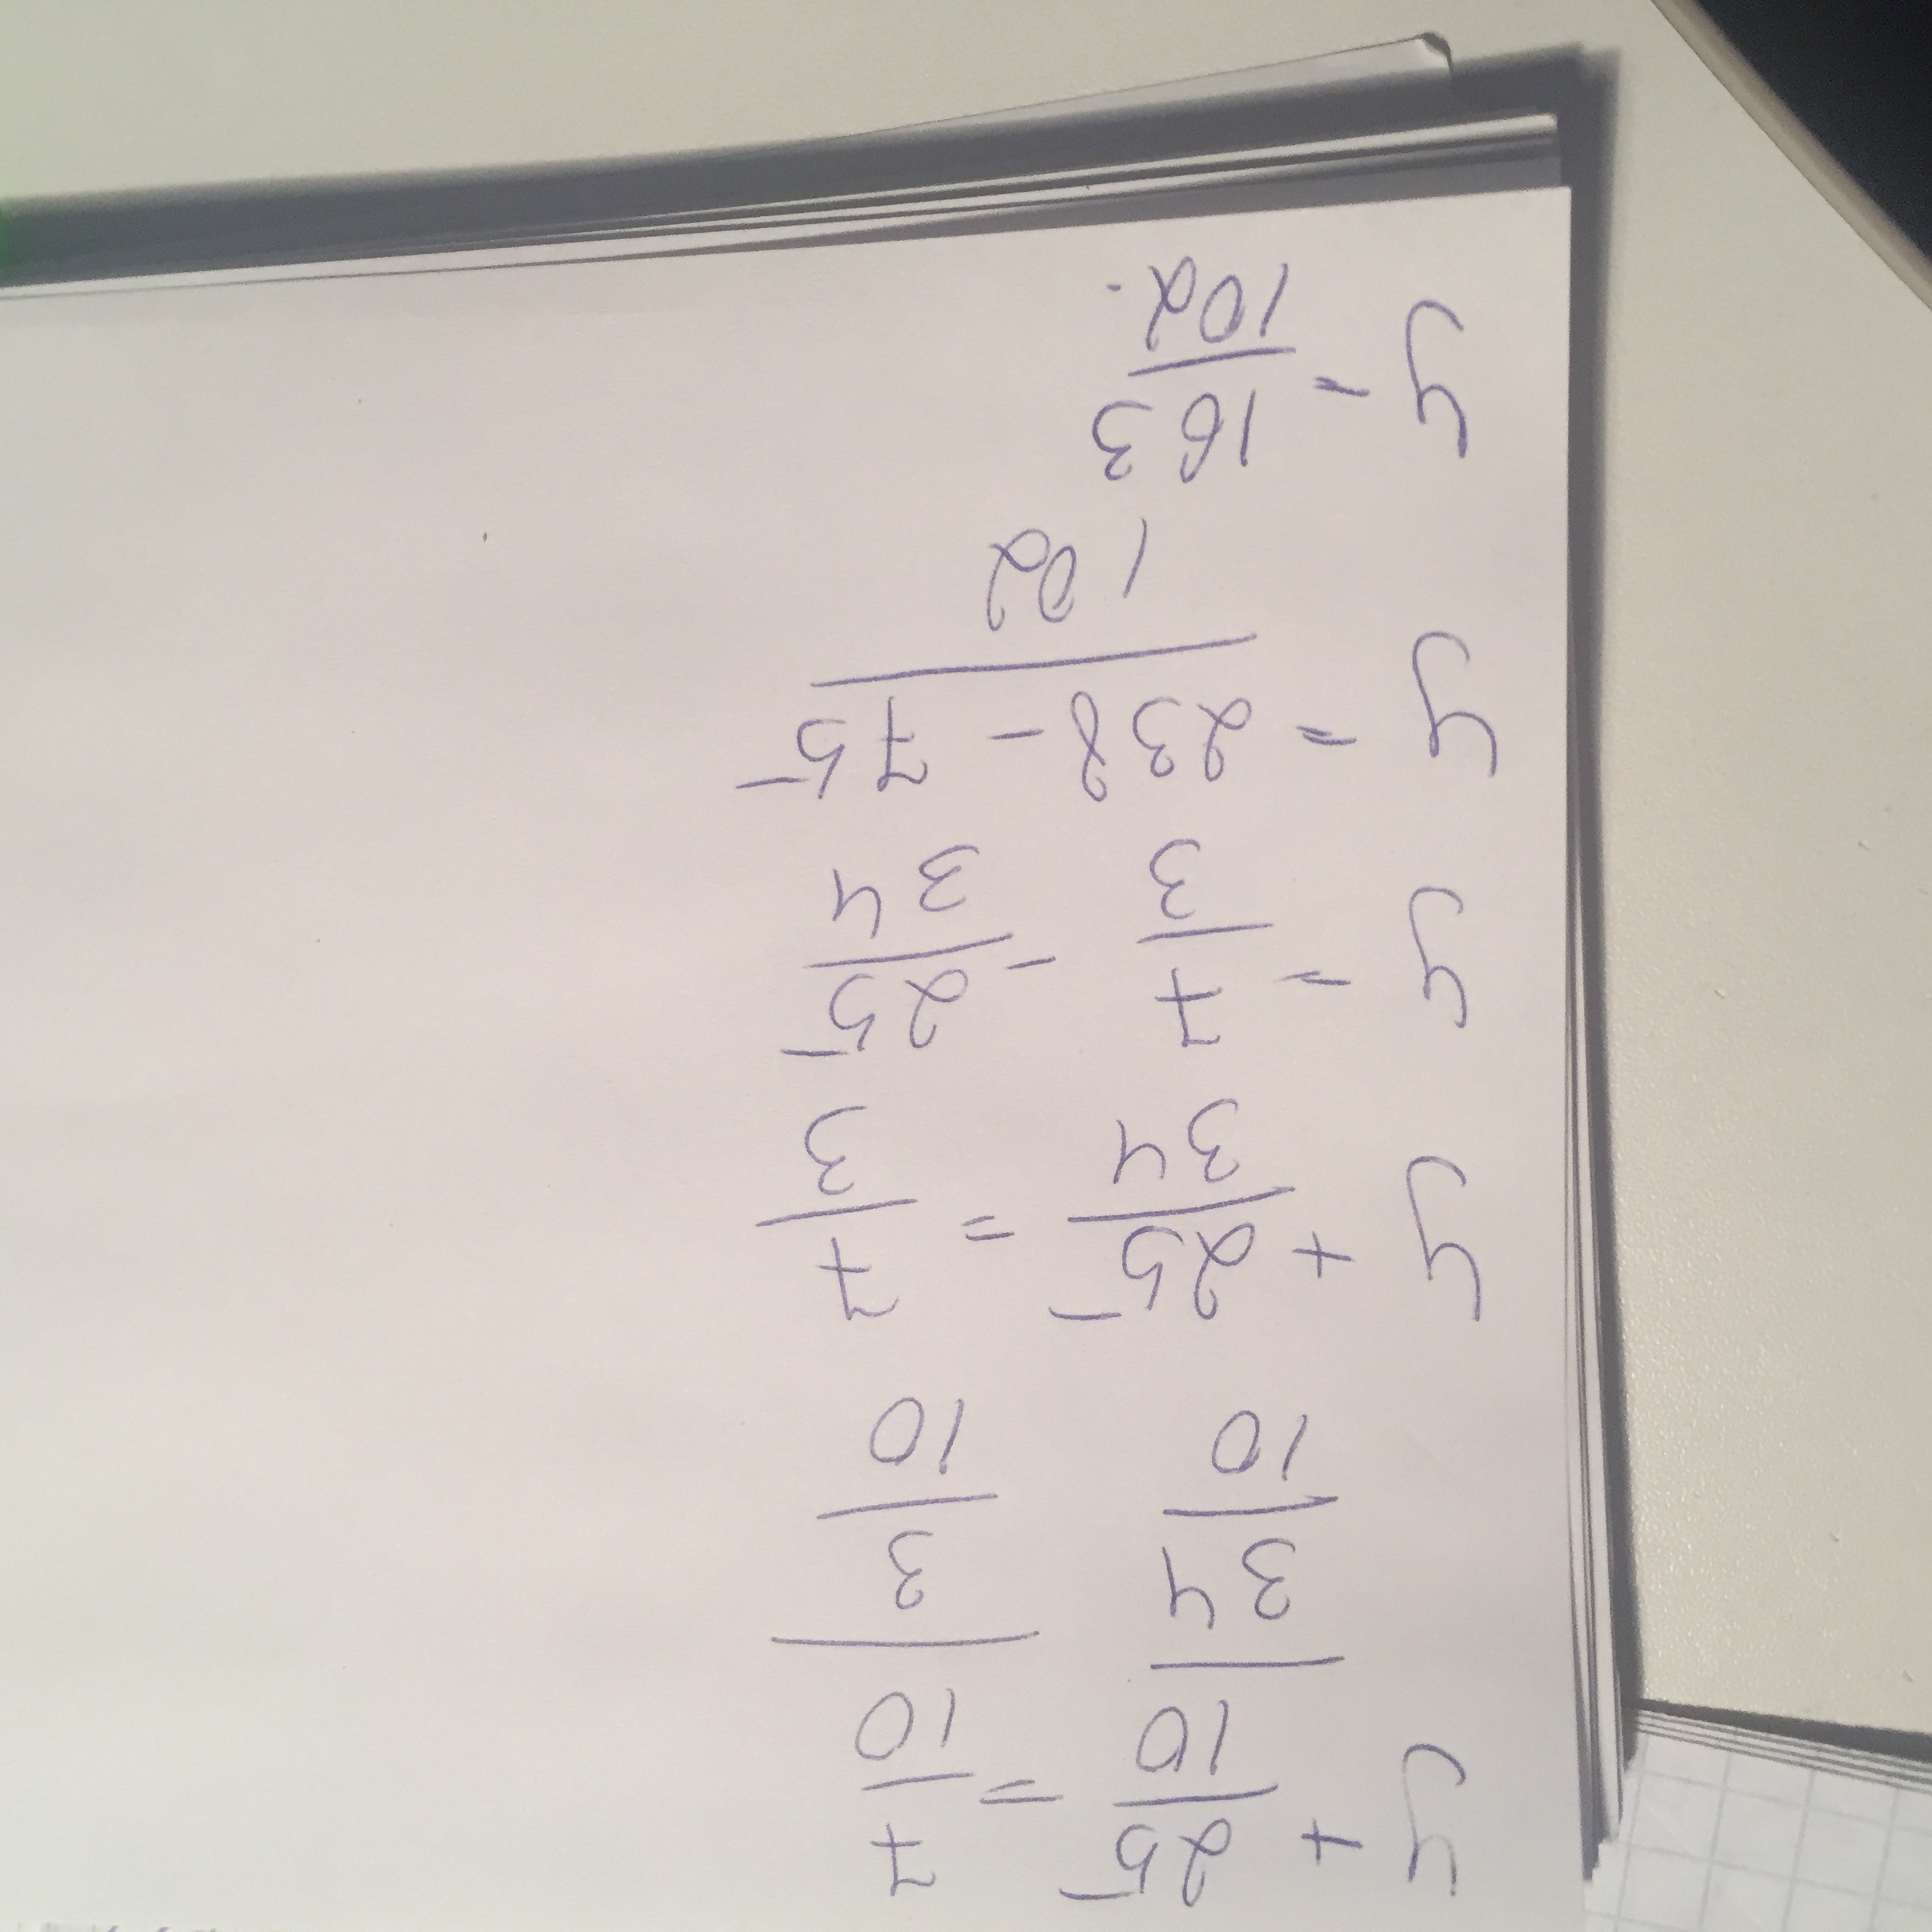 y + 25/10 = 7/10
34/10 3/10
y + 25/34 = 7/3
y = 7/3 - 25/34
y = 238 - 75 / 102
y = 163/102.